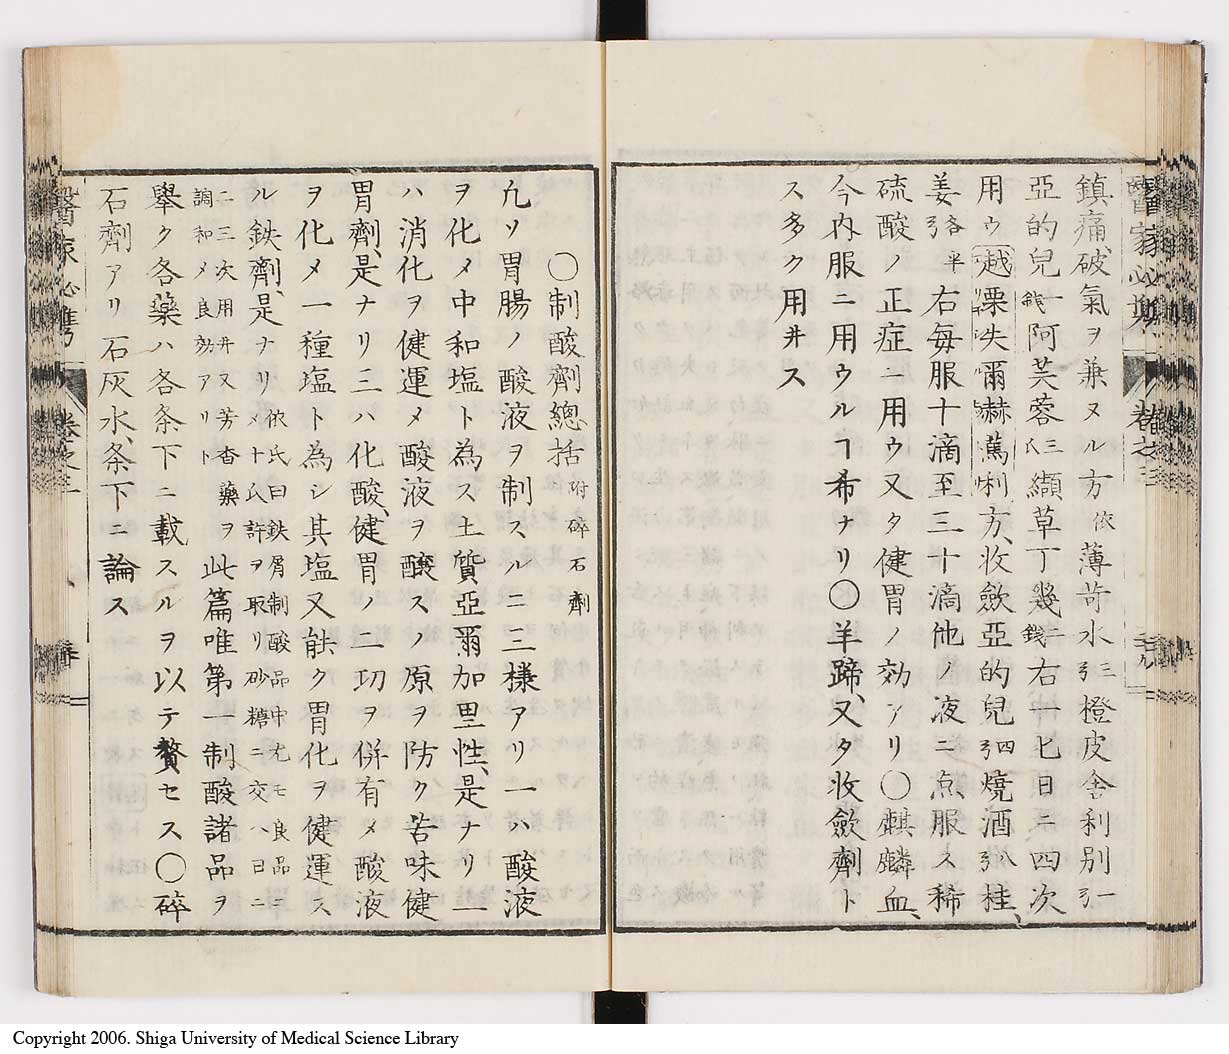 醫家必携
卷之二
二九
鎮痛、破氣ヲ兼ヌル方依薄苛水弘三橙皮舎利別弘一
亞的兒一錢阿芙蓉三氏纈草丁幾二錢右半匕日ニ四次
用ウ越栗失爾赫萬唎方、收斂亞的兒弘四燒酒弘八桂、
姜各半弘右毎服十滴至三十滴他ノ液ニ点服ス稀
硫酸ノ正症ニ用ウ又タ健胃ノ効アリ〇麒麟血、
今内服ニ用ウルヿ希ナリ〇羊蹄、又タ收斂劑ト
ス多ク用井ス
〇制酸劑總括附碎石劑
凢ソ胃腸ノ酸液ヲ制スル三様アリ一ハ酸液
ヲ化メ中和塩ト為ス土質亞爾加里性、是ナリ二
ハ消化ヲ健運メ酸液ヲ釀スノ原ヲ防ク苦味健
胃劑、是ナリ三ハ化酸、健胃ノ二功ヲ併有メ酸液
ヲ化メ一種塩ト為シ其塩又能ク胃化ヲ健運ス
ル鉄劑、是ナリ依氏曰鉄屑制酸品中尤モ良品ニメ十氏許ヲ取リ砂糖ニ交ハ日ニ
二三次用井又芳香藥ヲ調和メ良効アリト此篇唯第一制酸諸品ヲ
擧ク各藥ハ各条下ニ載スルヲ以テ贅セス〇碎
石劑アリ石灰水、条下ニ論ス
醫家必携
卷之二
Copyright 2006. Shiga University of Medical Science Library